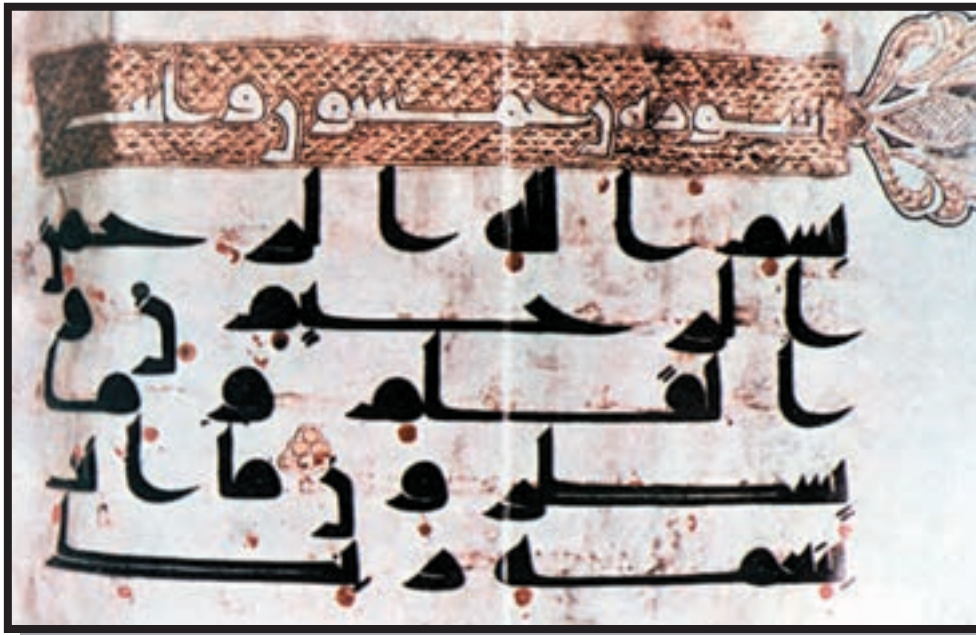 سوره ن خمسون
بسم الله الرحمن
الرحيم ن و
القلم وما
يسطرون ما انت
بنعمه ربك